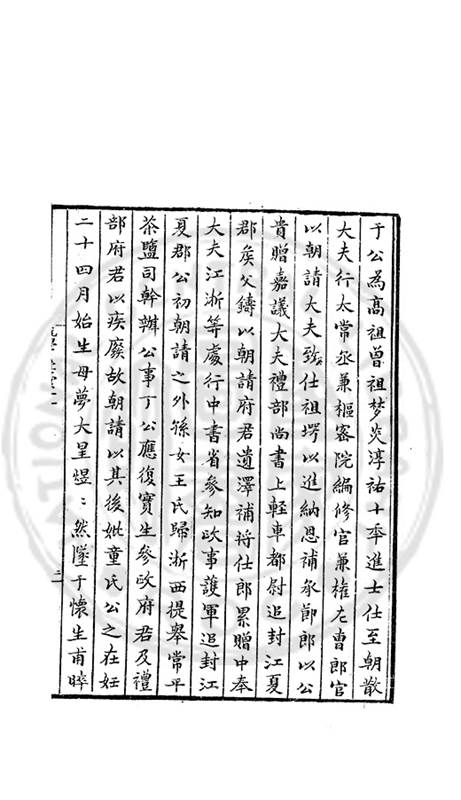 于公為髙祖曾祖夢炎淳祐十年進士仕至朝散
大夫行太常丞兼樞宻院編修官兼權左曹郎官
以朝請大夫致仕祖堮以進納恩補承節郎以公
貴贈嘉議大夫禮部尚書上輕車都尉追封江夏
郡矦父鑄以朝請府君遺澤補將仕郎累贈中奉
大夫江浙等處行中書省參知政事護軍追封江
夏郡公初朝請之外孫女王氏歸浙西提舉常平
茶鹽司幹辦公事丁公應復實生參政府君及禮
部府君以疾廢故朝請以其後妣童氏公之在妊
二十四月始生母夢大星煜:然墜于懷生甫晬
二